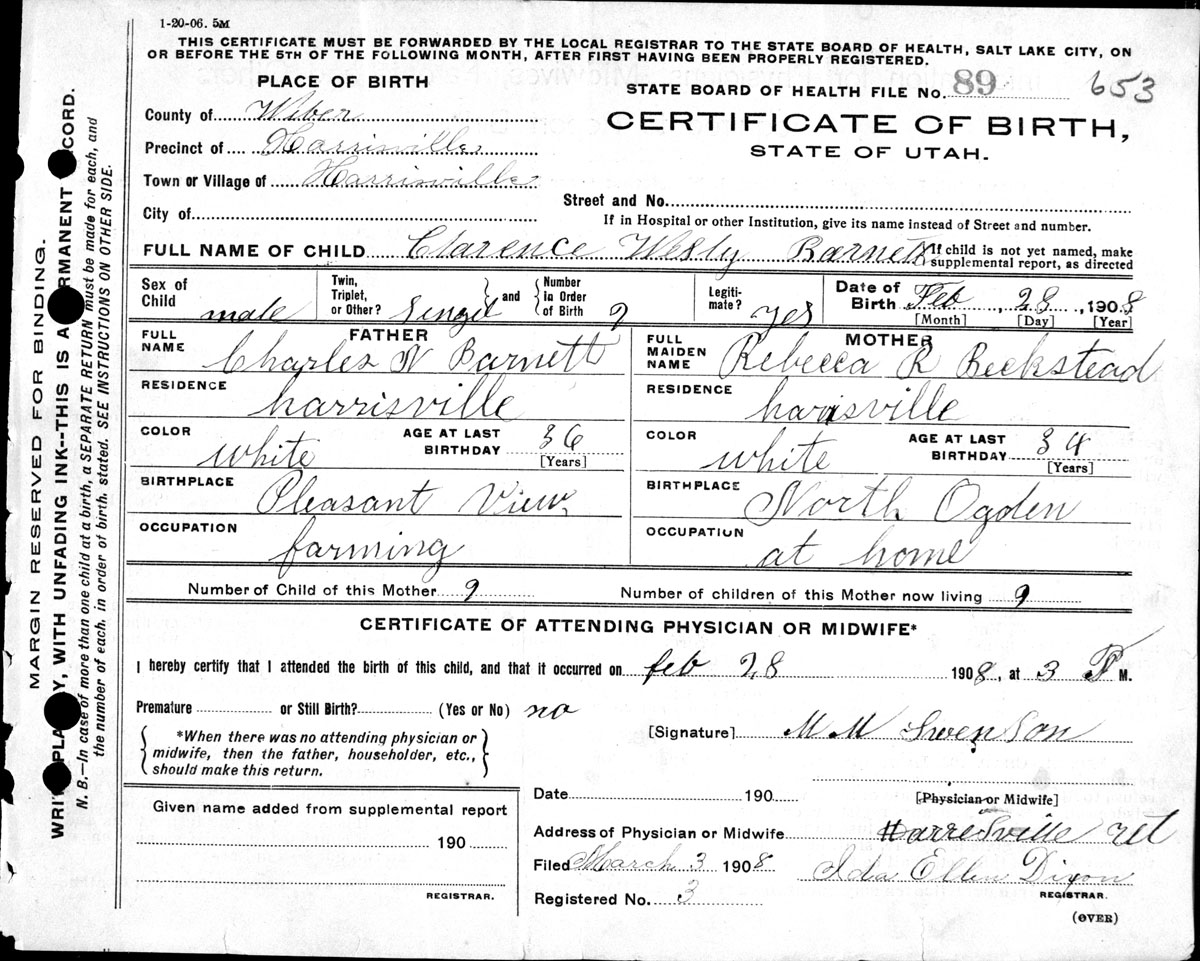 1-20-06. 5M
THIS CERTIFICATE MUST BE FORWARDED BY THE LOCAL REGISTRAR TO THE STATE BOARD OF HEALTH, SALT LAKE CITY, ON
OR BEFORE THE 5TH OF THE FOLLOWING MONTH, AFTER FIRST HAVING BEEN PROPERLY REGISTERED.
PLACE OF BIRTH
STATE BOARD OF HEALTH FILE No. 89 653
County of Weber
CERTIFICATE OF BIRTH,
Precinct of Harrisville
STATE OF UTAH.
Town or Village of Harrisville
Street and No.
City of
If in Hospital or other Institution, give its name instead of Street and number.
FULL NAME OF CHILD Clarence Wesly Barnett {If child is not yet named, make
supplemental report, as directed
Sex of Child male
Twin, Triplet, or Other? Singel } and { Number in Order of Birth 9
Legiti-mate? yes
Date of Birth Feb, 28, 1908
[Month] [Day] [Year]
FATHER
FULL NAME Charles N Barnett
RESIDENCE harrisville
COLOR white AGE AT LAST BIRTHDAY 36
[Years]
BIRTHPLACE Pleasant View
OCCUPATION farming
MOTHER
FULL MAIDEN NAME Rebecca R Beckstead
RESIDENCE harrisville
COLOR white AGE AT LAST BIRTHDAY 34
[Years]
BIRTHPLACE North Ogden
OCCUPATION at home
Number of Child of this Mother 9 Number of children of this Mother now living 9
CERTIFICATE OF ATTENDING PHYSICIAN OR MIDWIFE*
I hereby certify that I attended the birth of this child, and that it occurred on feb 28 1908, at 3 P M.
Premature or Still Birth? (Yes or No) no
{ *When there was no attending physician or
midwife, then the father, householder, etc.,
should make this return. }
[Signature] M M Swenson
Date 190
[Physician or Midwife]
Given name added from supplemental report
190
REGISTRAR.
Address of Physician or Midwife Harresville
Filed March 3 1908 Ida Ellen Dixon
REGISTRAR.
Registered No. 3
(OVER)
MARGIN RESERVED FOR BINDING.
WRIT PLA Y, WITH UNFADING INK--THIS IS A RMANENT CORD.
N. B.—In case of more than one child at a birth, a SEPARATE RETURN must be made for each, and
the number of each, in order of birth, stated. SEE INSTRUCTIONS ON OTHER SIDE.